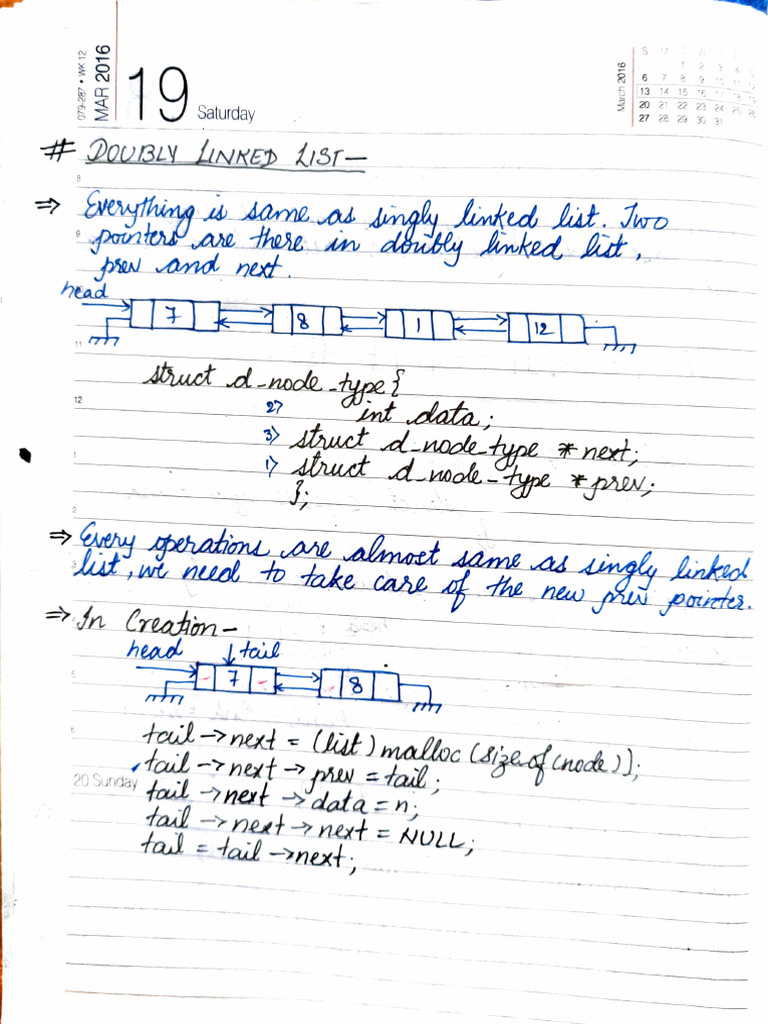 079-287 • WK 12
MAR 2016
19 Saturday
March 2016
S M
1 2 3
6 7 8 9
13 14 15 16 17
20 21 22 23 24 25
27 28 29 30 31
# DOUBLY LINKED LIST —
8
⇒ Everything is same as singly linked list. Two
9
pointers are there in doubly linked list,
prev and next.
head
7 8 1 12
11
struct d_node_type {
12
2> int data;
3> struct d_node_type * next;
1
1> struct d_node_type * prev;
};
2
⇒ Every operations are almost same as singly linked
3
list, we need to take care of the new prev pointer.
⇒ In Creation —
head ↓ tail
5
7 8
6
tail → next = (list) malloc (size of (node));
tail → next → prev = tail;
20 Sunday
tail → next → data = n;
tail → next → next = NULL;
tail = tail → next;